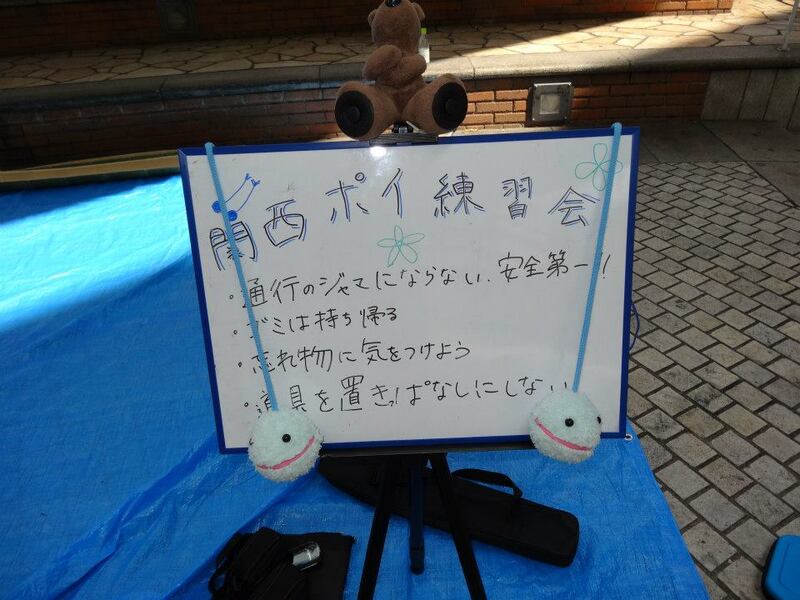 関西ポイ練習会
・通行のジャマにならない、安全第一!
・ゴミは持ち帰る
・忘れ物に気をつけよう
・道具を置きっぱなしにしない